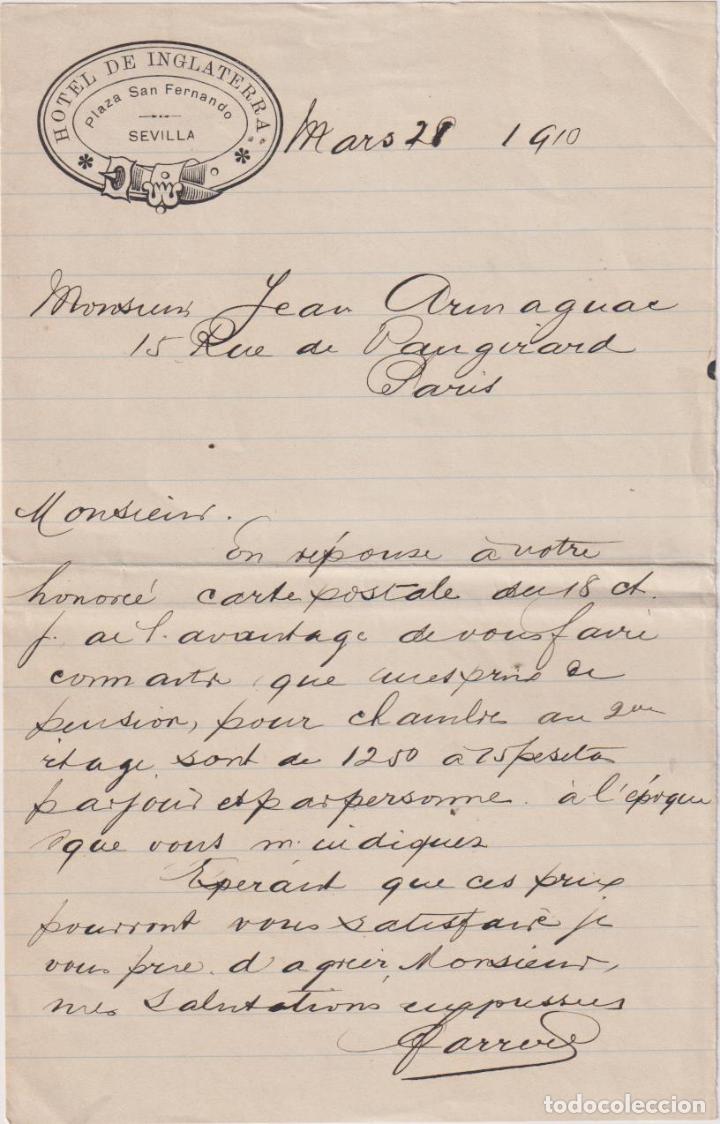 HOTEL DE INGLATERRA
Plaza San Fernando
SEVILLA
Mars 28 1910
Monsieur Jean Armagnac
15 Rue de Vaugirard
Paris
Monsieur.
En réponse à votre
honoré carte postale du 18 ct.
j. ai l. avantage de vous faire
connaitre que mes prix de
pension, pour chambre au 2me
etage sont de 1250 à 15 pesetas
par jour et par personne. à l'époque
que vous m'indiquez
Eperant que ces prix
pourront vous satisfaire je
vous prie d'agréer Monsieur,
mes Salutations empressées
todocoleccion